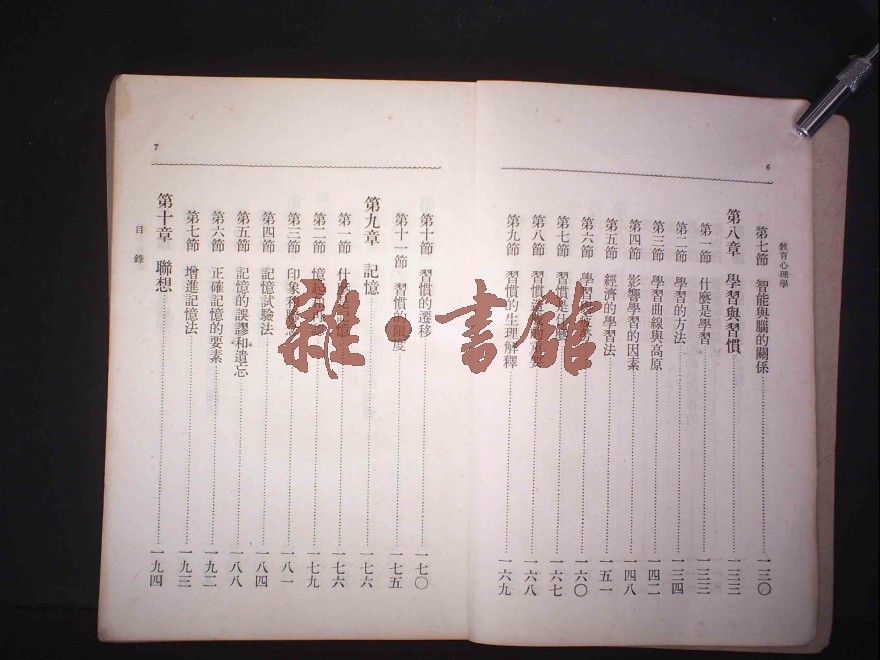 教育心理學
6
第七節 智能與腦的關係 一三〇
第八章 學習與習慣 一三三
第一節 什麼是學習 一三三
第二節 學習的方法 一三四
第三節 學習曲線與高原 一四二
第四節 影響學習的因素 一四八
第五節 經濟的學習法 一五一
第六節 學習 一六〇
第七節 習慣是 一六七
第八節 習慣 的重要 一六八
第九節 習慣的生理解釋 一六九
7
目錄
第十節 習慣的遷移 一七〇
第十一節 習慣的限度 一七五
第九章 記憶 一七六
第一節 什 記憶 一七六
第二節 憶起 一七九
第三節 印象 一八一
第四節 記憶試驗法 一八四
第五節 記憶的誤謬和遺忘 一八八
第六節 正確記憶的要素 一九二
第七節 增進記憶法 一九三
第十章 聯想 一九四
雜·書館